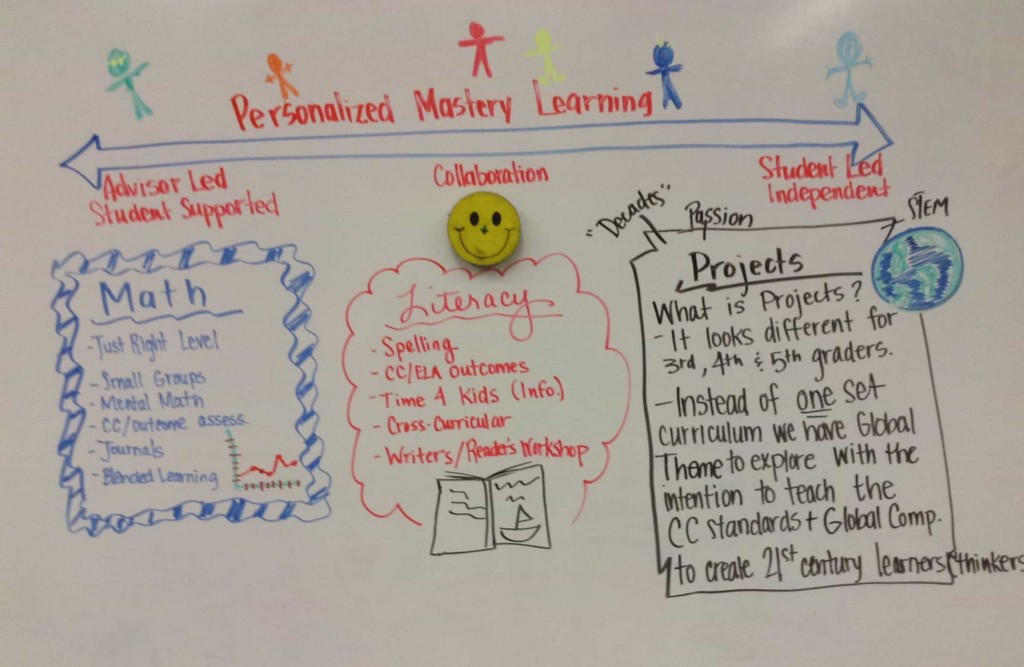 Personalized Mastery Learning
Advisor Led
Student Supported
Collaboration
Student Led
Independent
Math
-Just Right Level
-Small Groups
-Mental Math
-CC/outcome assess.
-Journals
-Blended Learning
Literacy
- Spelling
- CC/ELA outcomes
- Time 4 Kids (Info.)
- Cross-Curricular
- Writers/Reader's Workshop
"Decades"
Passion
STEM
Projects
What is Projects?
- It looks different for
3rd, 4th & 5th graders.
- Instead of one set
curriculum we have Global
Theme to explore with the
intention to teach the
CC standards + Global Comp.
to create 21st century learners/thinkers